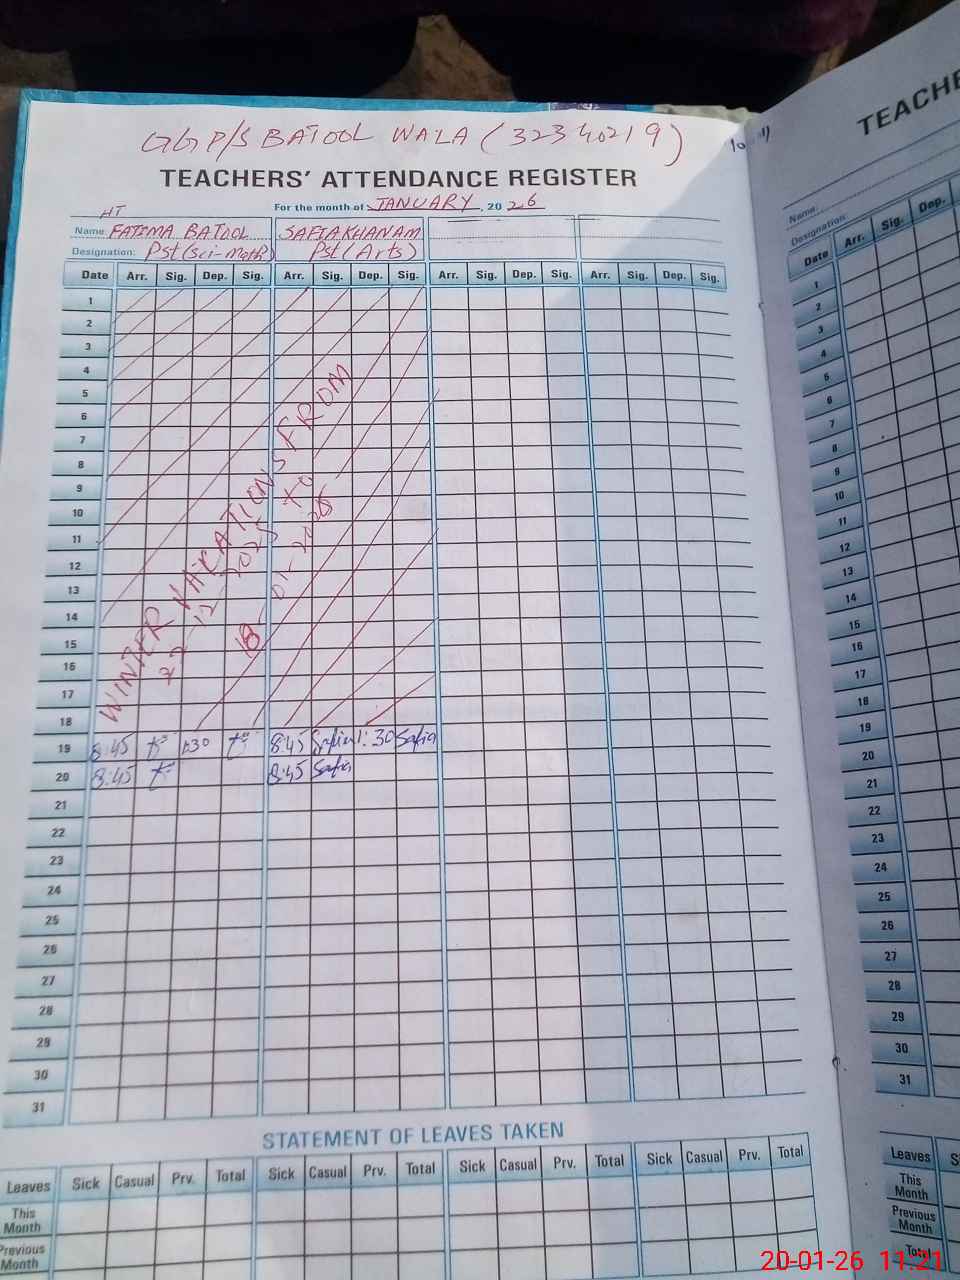 GGP/S BATOOL WALA (32340219)
TEACHERS' ATTENDANCE REGISTER
For the month of JANUARY, 2026
HT
Name: FATIMA BATOOL SAFIA KHANAM
Designation: Pst (Sci-Math) Pst (Arts)
Date Arr. Sig. Dep. Sig. Arr. Sig. Dep. Sig. Arr. Sig. Dep. Sig. Arr. Sig. Dep. Sig.
1
2
3
4
5
6
7
8
9
10
11
12
13
14
15
16
17
18
WINTER VACATIONS FROM
22-12-2025 to
18-01-2026
19 8:45 1:30 8:45 Safia 1:30 Safia
20 8:45 8:45 Safia
21
22
23
24
25
26
27
28
29
30
31
STATEMENT OF LEAVES TAKEN
Leaves Sick Casual Prv. Total Sick Casual Prv. Total Sick Casual Prv. Total Sick Casual Prv. Total
This Month
Previous Month
TEACHE
Name:
Designation:
Date Arr. Sig. Dep.
1
2
3
4
5
6
7
8
9
10
11
12
13
14
15
16
17
18
19
20
21
22
23
24
25
26
27
28
29
30
31
Leaves S
This Month
Previous Month
Total
20-01-26 11:21